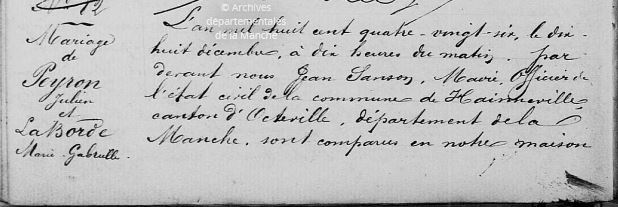 N° 12
Mariage
de
Peyron
Julien
et
La Borde
Marie-Gabrielle.
© Archives
départementales
de la Manche
L'an mil huit cent quatre-vingt-six, le dix-
huit décembre, à dix heures du matin. par
devant nous Jean Sanson, Maire, Officier de
l'état civil de la commune de Hainneville
canton d'Octeville, département de la
Manche, sont comparus en notre maison